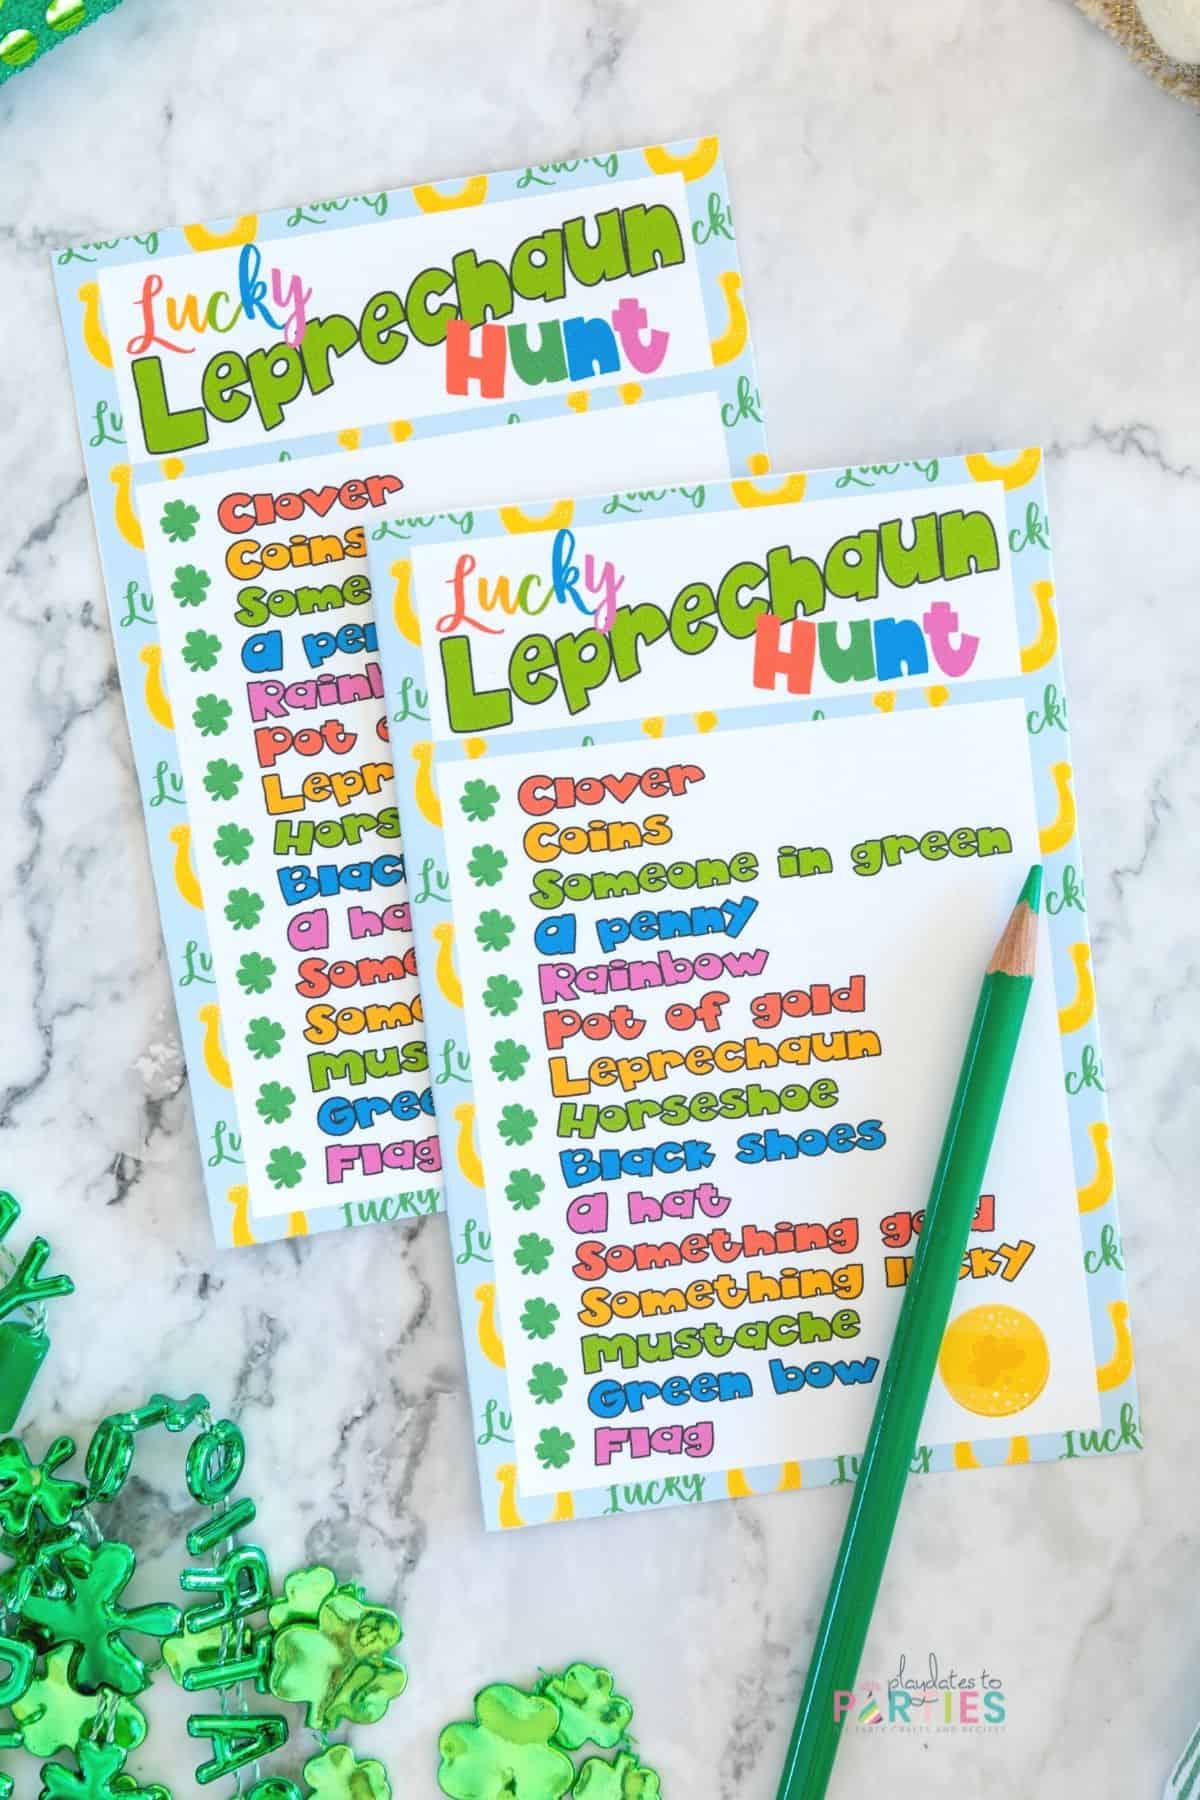 Lucky
Leprechaun
Hunt
Clover
Coins
Some
a pen
Rainb
Pot
Lepr
Hors
Blac
a ha
Some
Some
Mus
Gree
Flag
Lucky
Lucky
Leprechaun
Hunt
Clover
Coins
Someone in green
a penny
Rainbow
Pot of gold
Leprechaun
Horseshoe
Black shoes
a hat
Something gold
Something lucky
Mustache
Green bow
Flag
Lucky
playdates to
PARTIES
DIY PARTY CRAFTS AND RECIPES